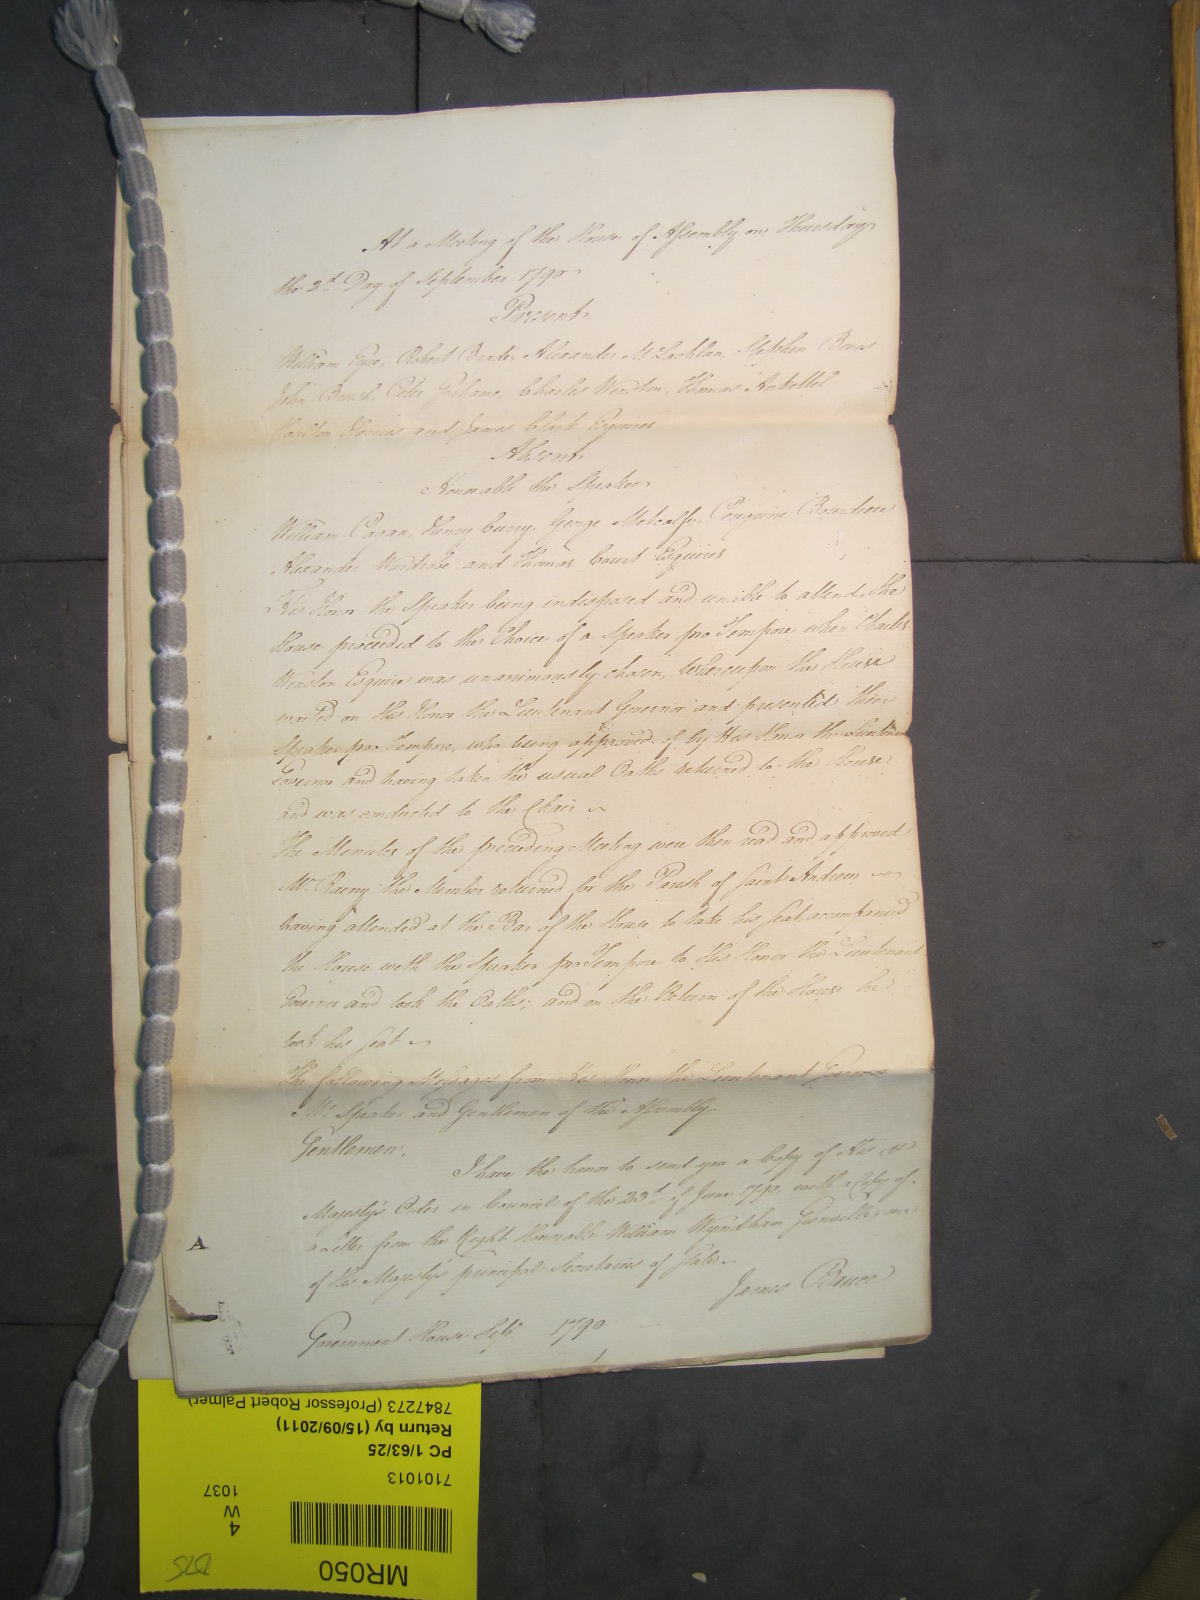 At a Meeting of the House of Assembly on Thursday
the 2d Day of September 1790
Present
William Fyce, Robert Alexander McLachlan, Stephen
John Peter Grahame, Charles Winston, Thomas Ankettell
and James Clark Esquires
Absent
Honorable the Speaker
William Pagan, Henry Curry, George Metcalfe, Peregrine Bourdieu
Alexander Wardrobe and Thomas Court Esquires
His Honor the Speaker being indisposed and unable to attend, the
House proceeded to the Choice of a Speaker pro Tempore when Charles
Winston Esquire was unanimously chosen, Whereupon the House
waited on His Honor the Lieutenant Governor and presented their
Speaker pro Tempore, who being approved of by His Honor the Lieutenant
Governor and having taken the usual Oaths returned to the House
and was conducted to the Chair
The Minutes of the preceeding Meeting were then read and approved
Mr. Rainy the Member returned for the Parish of Saint Andrew
having attended at the Bar of the House to take his Seat accompanied
the House with the Speaker pro Tempore to His Honor the Lieutenant
Governor and took the Oaths; and on the Return of the House he
took his Seat
The following Messages from His Honor the Lieutenant Governor
Mr. Speaker and Gentlemen of the Assembly
Gentlemen,
I have the honor to send you a Copy of His
Majesty's Order in Council of the 23d of June 1790, with a Copy of
a Letter from the Right Honorable William Wyndham Grenville one
of His Majesty's principal Secretaries of State
James Bruce
Government House Septr 1790
A
7847273 (Professor Robert Palmer)
Return by (15/09/2011)
PC 1/63/25
7101013
4
W
1037
MR050